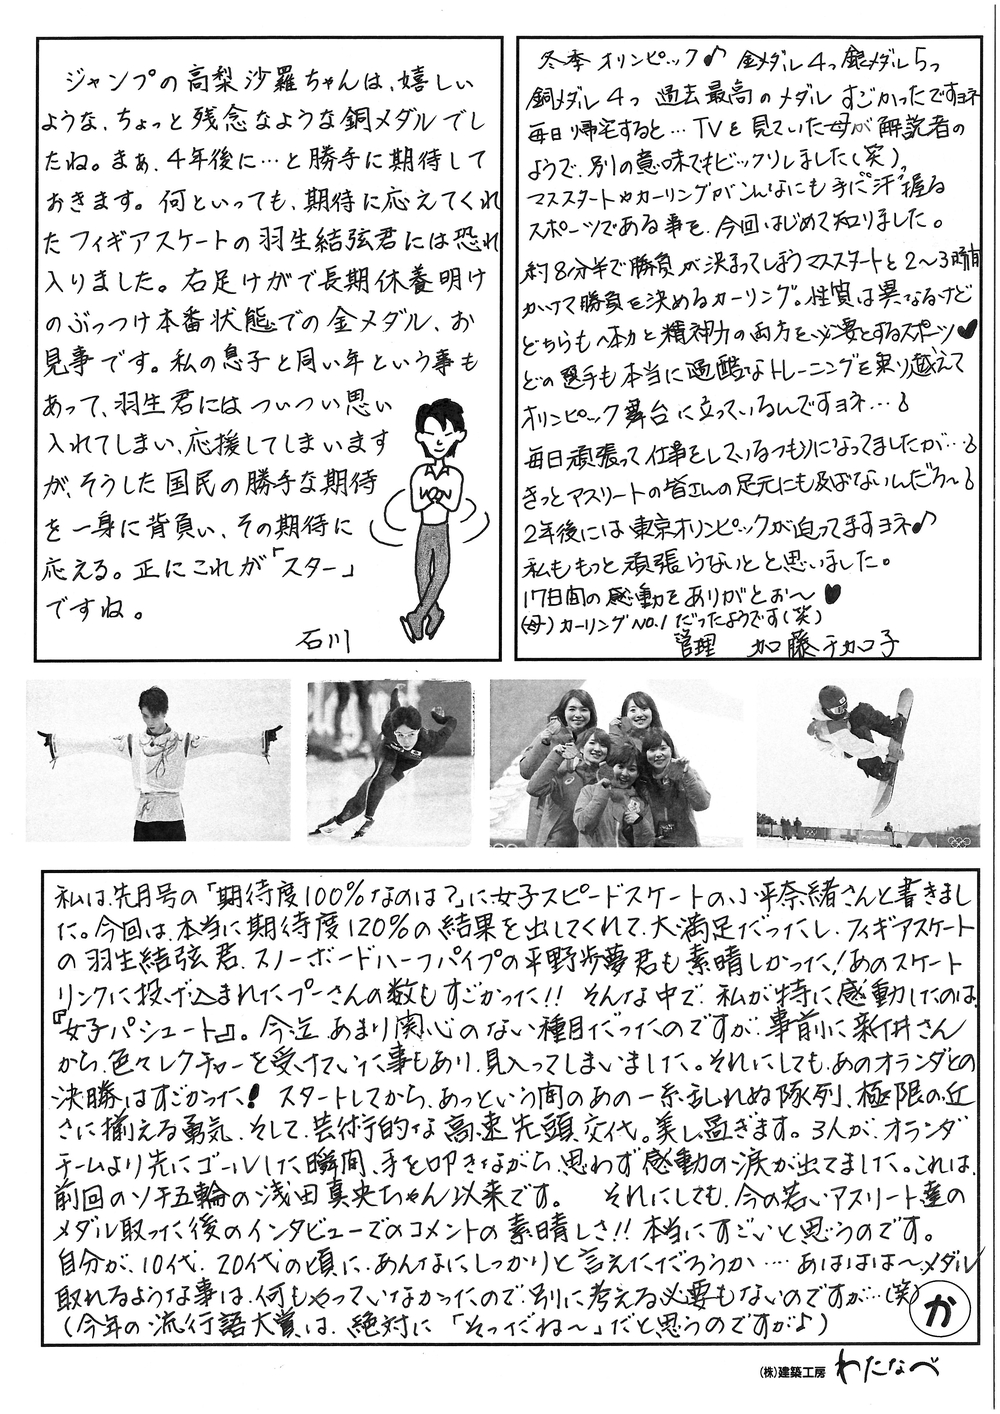 ジャンプの高梨沙羅ちゃんは、嬉しい
ような、ちょっと残念なような銅メダルでし
たね。まぁ、4年後に…と勝手に期待して
おきます。何といっても、期待に応えてくれ
たフィギアスケートの羽生結弦君には恐れ
入りました。右足けがで長期休養明け
のぶっつけ本番状態での金メダル、お
見事です。私の息子と同い年という事も
あって、羽生君にはついつい思い
入れてしまい、応援してしまいます
が、そうした国民の勝手な期待
を一身に背負い、その期待に
応える。正にこれが「スター」
ですね。
石川
冬季オリンピック♪ 金メダル4つ銀メダル5つ
銅メダル4つ 過去最高のメダル すごかったですヨネ
毎日帰宅すると…TVを見ていた母が解説者の
ようで、別の意味でもビックリしました(笑)。
マススタートやカーリングがこんなにも手に"汗"握る
スポーツである事を、今回はじめて知りました。
約8分半で勝負が決まってしまうマススタートと2〜3時間
かけて勝負を決めるカーリング。性質は異なるけど
どちらも体力と精神力の両方を必要とするスポーツ♥
どの選手も本当に過酷なトレーニングを乗り越えて
オリンピック舞台に立っているんですヨネ…♪
毎日頑張って仕事をしているつもりになってましたが…♪
きっとアスリートの皆さんの足元にも及ばないんだろ〜♪
2年後には東京オリンピックが迫ってますヨネ♪
私ももっと頑張らないとと思いました。
17日間の感動をありがとぉ〜♥
(母)カーリングNO.1だったようです(笑)
管理 加藤チカコ子
私は、先月号の「期待度100%なのは?」に女子スピードスケートの、小平奈緒さんと書きまし
た。今回は、本当に期待度120%の結果を出してくれて、大満足だったし、フィギアスケート
の羽生結弦君、スノーボードハーフパイプの平野歩夢君も素晴しかった!あのスケート
リンクに投げ込まれたプーさんの数もすごかった!! そんな中で、私が特に感動したのは、
『女子パシュート』。今迄、あまり関心のない種目だったのですが、事前に新井さん
から、色々レクチャーを受けていた事もあり、見入ってしまいました。それにしても、あのオランダとの
決勝はすごかった! スタートしてから、あっという間のあの一糸乱れぬ隊列、極限の近
さに揃える勇気、そして、芸術的な高速先頭交代。美し過ぎます。3人が、オランダ
チームより先にゴールした瞬間、手を叩きながら、思わず感動の涙が出てました。これは、
前回のソチ五輪の浅田真央ちゃん以来です。 それにしても、今の若いアスリート達の
メダル取った後のインタビューでのコメントの素晴しさ!! 本当にすごいと思うのです。
自分が、10代、20代の頃に、あんなにしっかりと言えただろうか…. あははは〜、メダル
取れるような事は、何もやっていなかったので、別に考える必要もないのですが…(笑)
(今年の流行語大賞は、絶対に「そっだね〜」だと思うのですが♪)
か
(株)建築工房 わたなべ